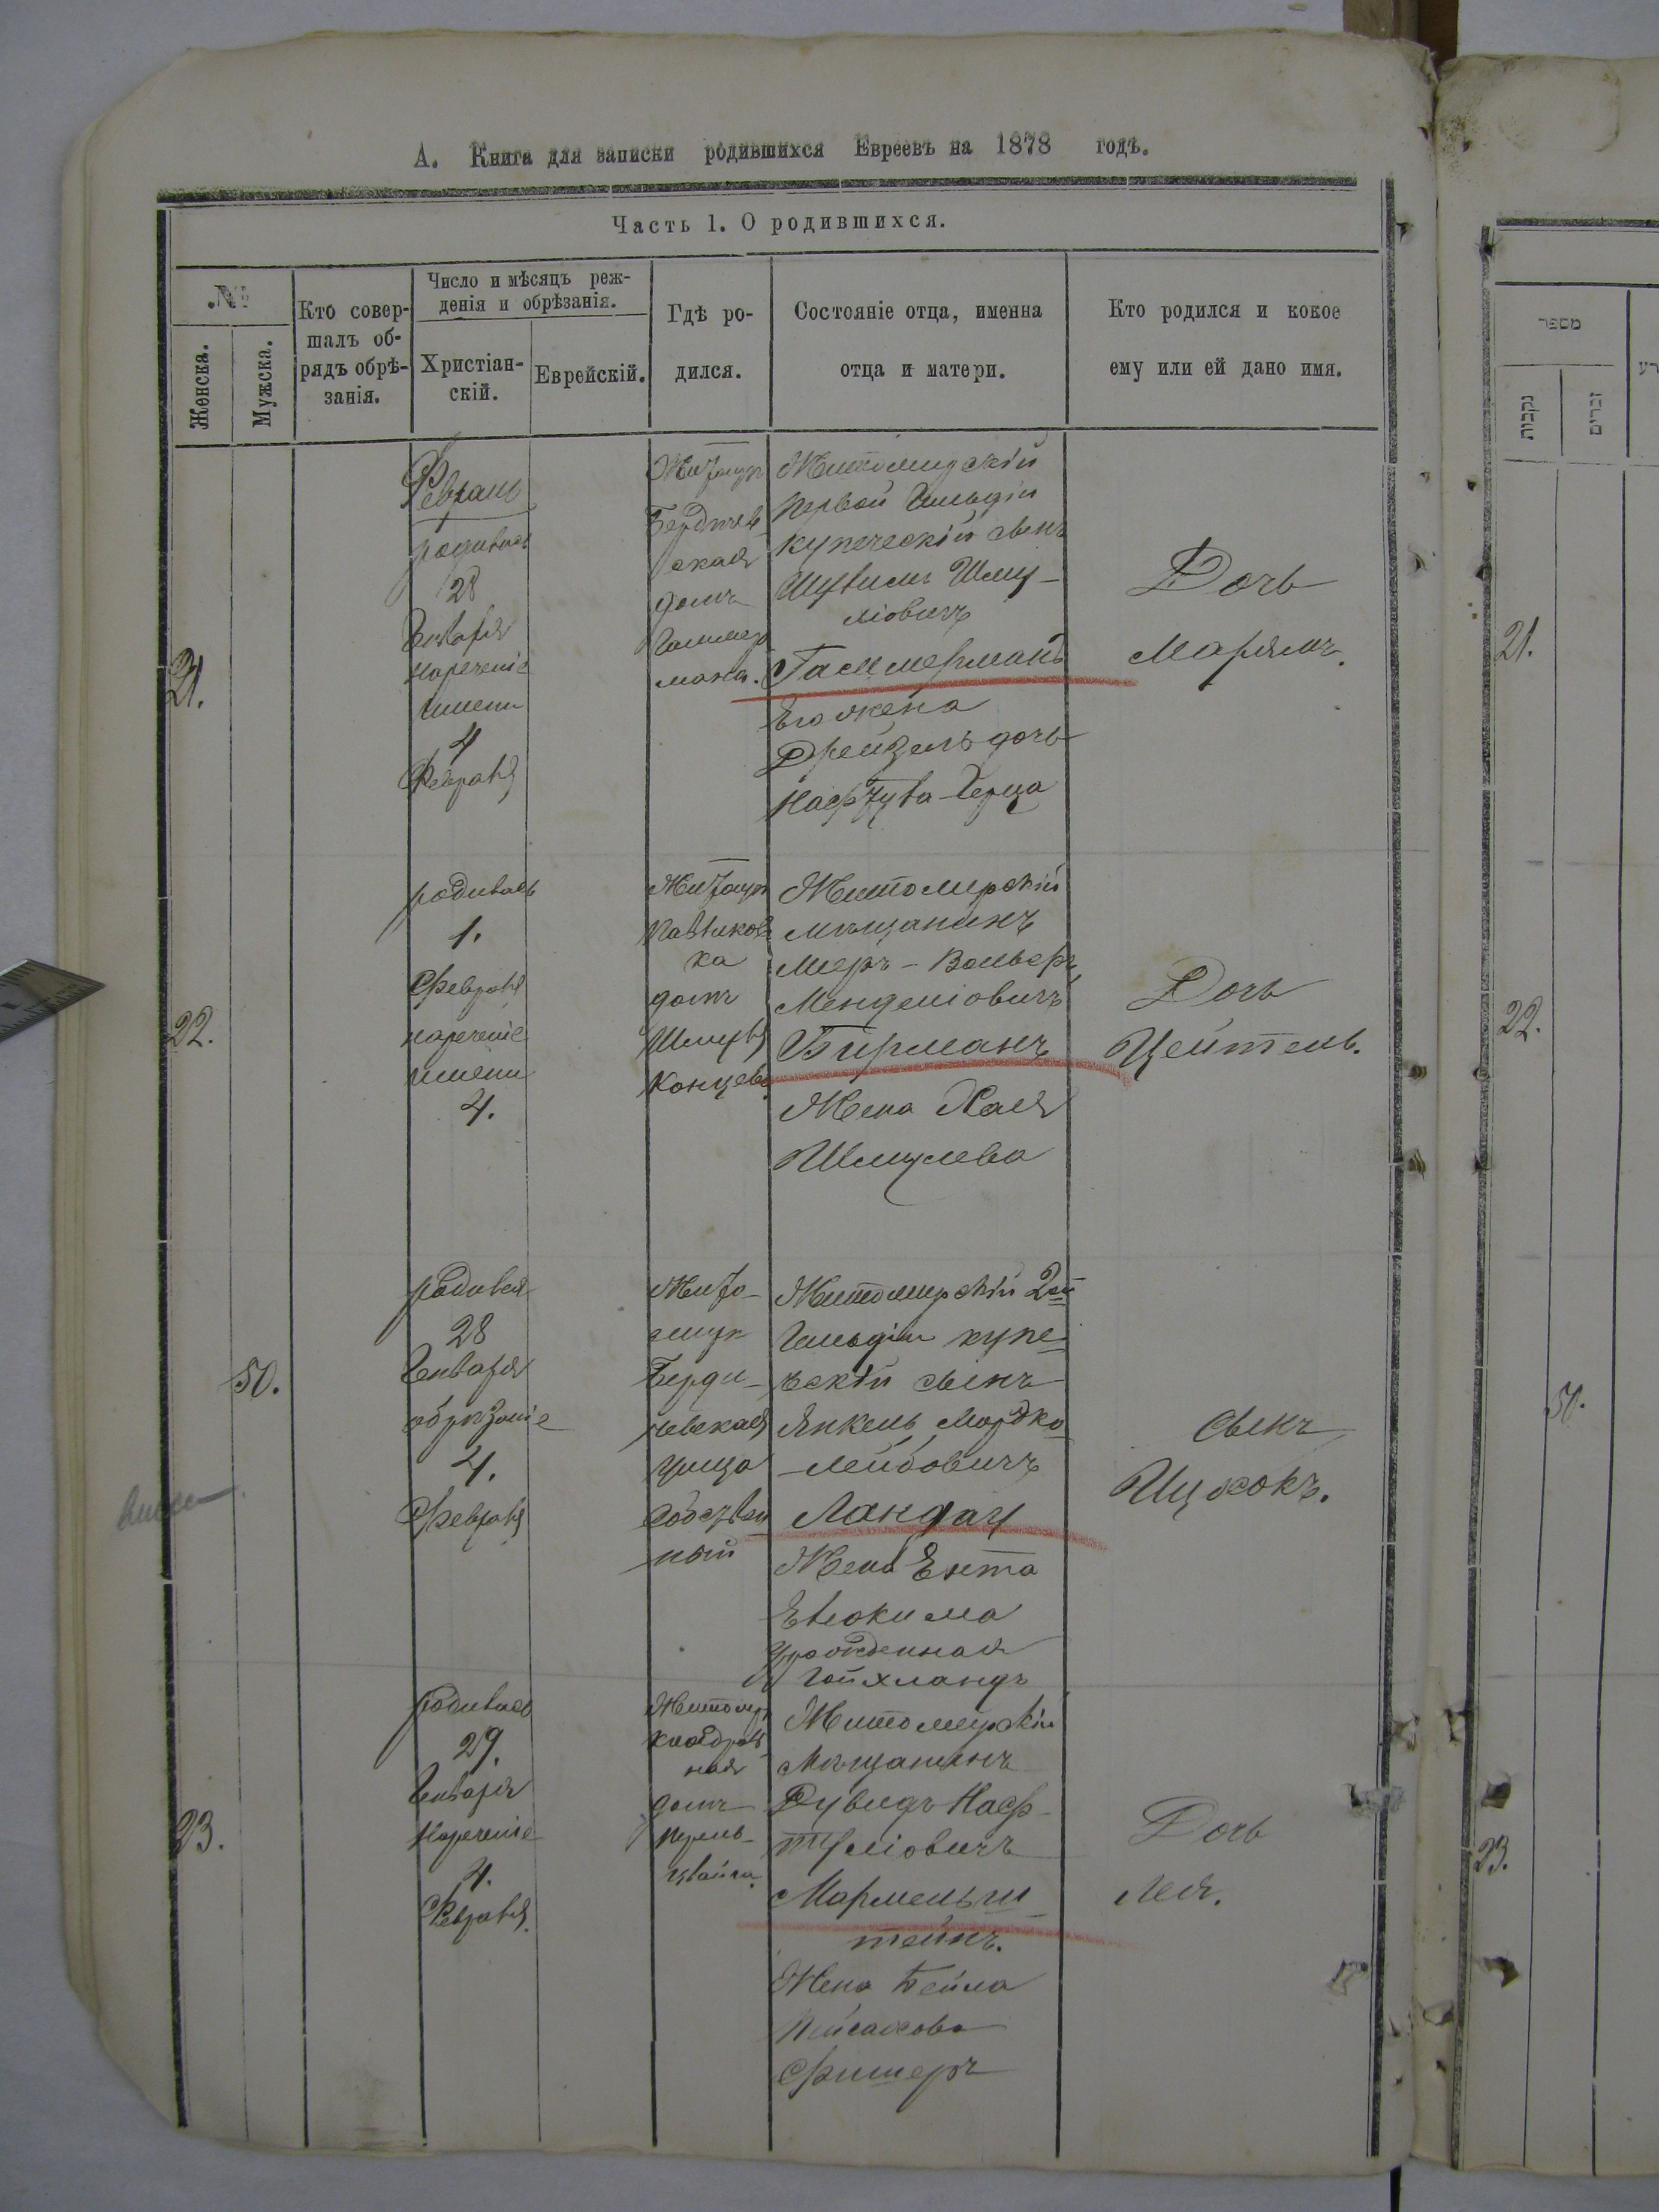 А. Книга для записки родившихся Евреевъ на 1878 годъ.
Часть 1. О родившихся.
№
Женска.
Мужска.
Кто совер-
шалъ об-
рядъ обрѣ-
занія.
Число и мѣсяцъ реж-
денія и обрѣзанія.
Христіан-
скій.
Еврейскій.
Гдѣ ро-
дился.
Состояніе отца, именна
отца и матери.
Кто родился и кокое
ему или ей дано имя.
מספר
נקבות
זכרים
21.
Февраль
родилась
28
Генваря
нареченіе
имени
4
Февраля
Житомір
Бердичев
ская
домъ
Гаммер
мана.
Житомирскій
первой Гильдіи
купеческій сынъ
Шму-
ліовичъ
Гаммерманъ
Его жена
Дрейзель дочь
Нафтула-Герца
Дочь
Марьямъ.
21.
22.
родилась
1.
Февраля
нареченіе
имени
4.
Житомир
Павликов
ка
домъ
Шмуля
Концево
Житомирскій
мѣщанинъ
Меръ-Вольфъ
Менделіовичъ
Бирманъ
Жена Хая
Шмулева
Дочь
Цейтель.
22.
50.
родился
28
Генваря
обрѣзаніе
4.
Февраля
Жито-
мир
Берди-
чевская
улица
собствен
ный
Житомирскій 2ой
Гильдіи купе-
ческій сынъ
Янкель Мордко
-Лейбовичъ
Ландау
Жена Ента
Евлокима
Урожденная
Гойхландъ
Сынъ
Ицхокъ.
50.
23.
родилась
29.
Генваря
Нареченіе
4.
Февраля.
Житомир
Кафедраль
ная
домъ
Перель-
цвайга.
Житомирскій
Мѣщанинъ
Дувидъ Наф-
туліовичъ
Мармельш-
тейнъ.
Жена Бейла
Пейсахова
Фишеръ
Дочь
Лея.
23.